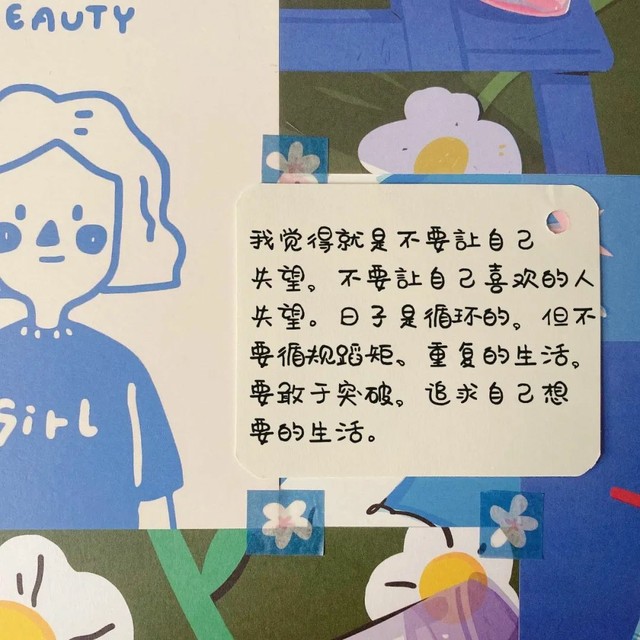 EAUTY
我觉得就是不要讓自己
失望。不要讓自己喜欢的人
失望。日子是循环的。但不
要循规蹈矩。重复的生活。
要敢于突破。追求自己想
要的生活。
Girl